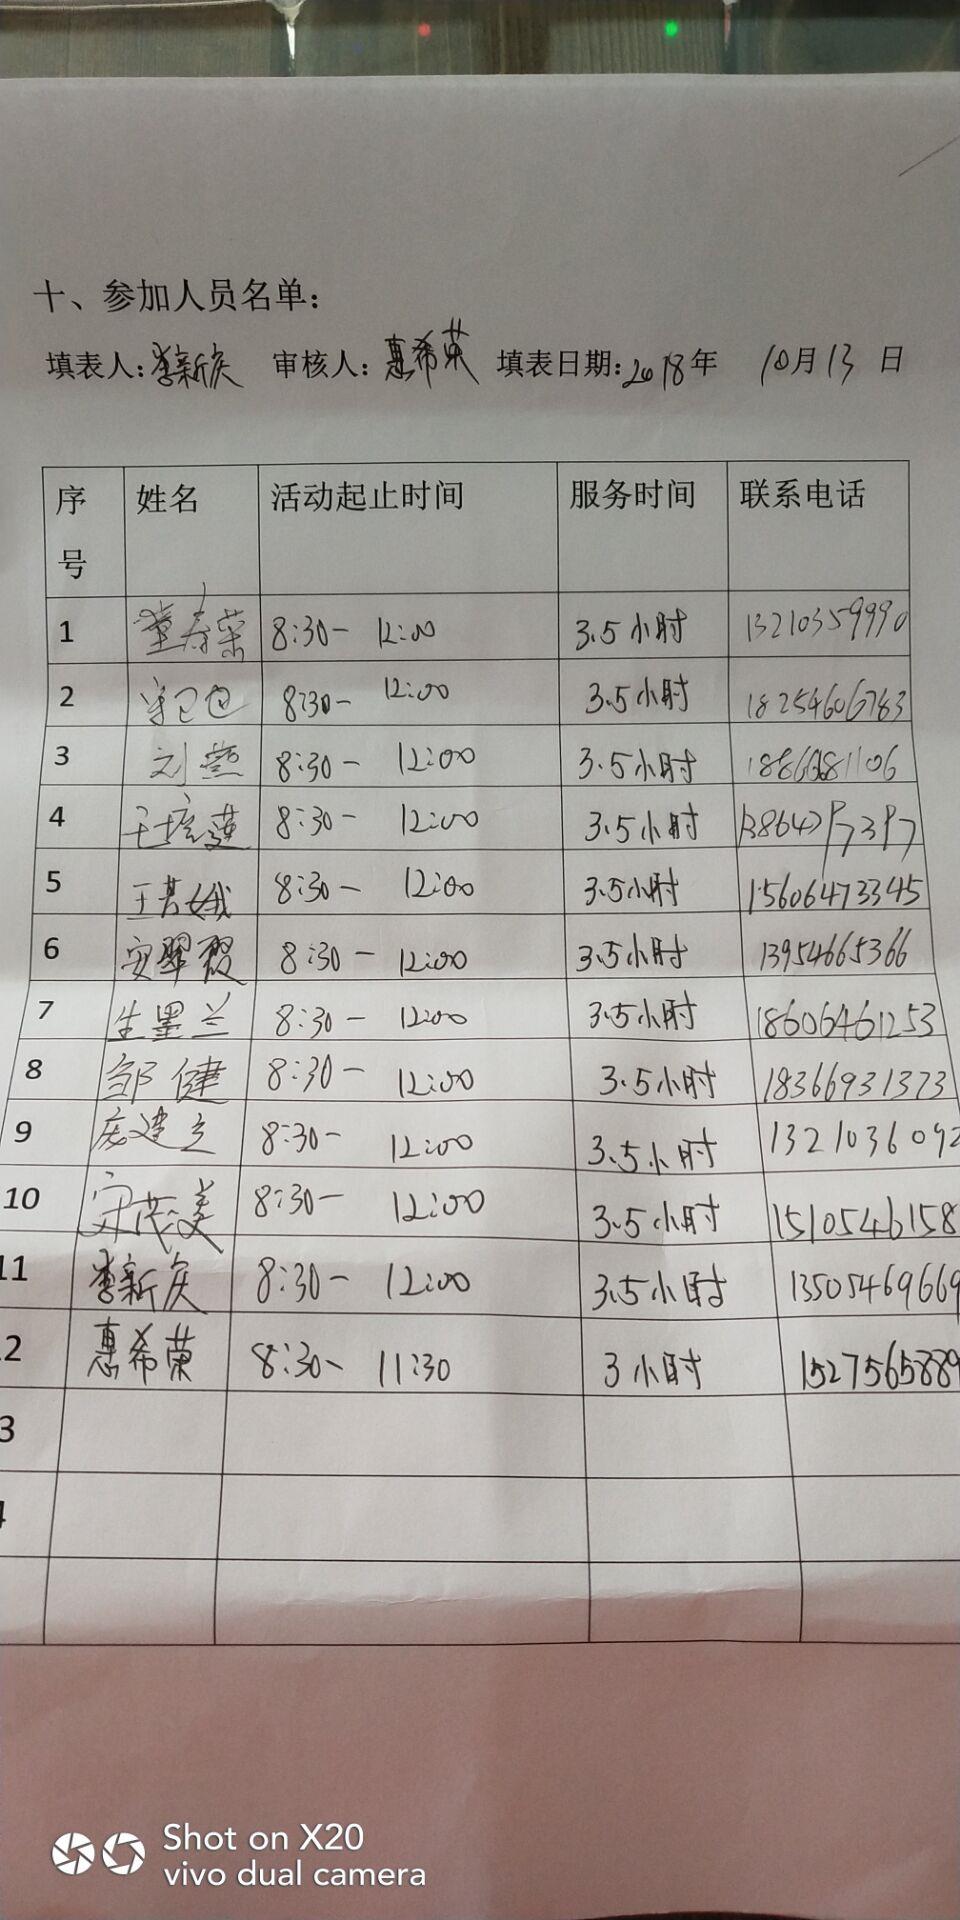 十、参加人员名单：
填表人：李新庆 审核人：惠希荣 填表日期：2018年 10月13日
序号 姓名 活动起止时间 服务时间 联系电话
1 董寿荣 8:30- 12:00 3.5小时 13210359990
2 8:30- 12:00 3.5小时 18254606783
3 刘燕 8:30- 12:00 3.5小时
4 王培莲 8:30- 12:00 3.5小时
5 王若娥 8:30- 12:00 3.5小时 15606473345
6 安翠霞 8:30- 12:00 3.5小时 13954665366
7 生墨兰 8:30- 12:00 3.5小时 18606461253
8 邹健 8:30- 12:00 3.5小时 18366931373
9 庞建立 8:30- 12:00 3.5小时 1321036092
10 宋茂美 8:30- 12:00 3.5小时 1510546158
11 李新庆 8:30- 12:00 3.5小时 13505469669
2 惠希荣 8:30- 11:30 3小时 1527565889
3
4
Shot on X20
vivo dual camera